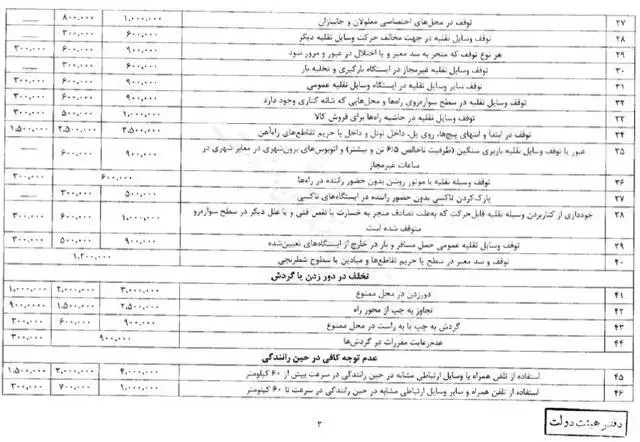 ۲۷ توقف در محل‌های اختصاصی معلولان و جانبازان ۱،۰۰۰،۰۰۰ ۸۰۰،۰۰۰ ——
۲۸ توقف وسایل نقلیه در جهت مخالف حرکت وسایل نقلیه دیگر ۶۰۰،۰۰۰ ۳۰۰،۰۰۰ ——
۲۹ هر نوع توقف که منجر به سد معبر و یا اختلال در عبور و مرور شود ۹۰۰،۰۰۰ ۶۰۰،۰۰۰ ۳۰۰،۰۰۰
۳۰ توقف وسایل نقلیه غیرمجاز در ایستگاه بارگیری و تخلیه بار ۶۰۰،۰۰۰ ۳۰۰،۰۰۰ ——
۳۱ توقف سایر وسایل نقلیه در ایستگاه وسایل نقلیه عمومی ۹۰۰،۰۰۰ ۶۰۰،۰۰۰ ۳۰۰،۰۰۰
۳۲ توقف وسایل نقلیه در سطح سواره‌روی راه‌ها و محل‌هایی که شانه کناری وجود دارد ۹۰۰،۰۰۰ ۶۰۰،۰۰۰ ۳۰۰،۰۰۰
۳۳ توقف وسایل نقلیه در حاشیه راه‌ها برای فروش کالا ۱،۰۰۰،۰۰۰ ۵۰۰،۰۰۰ ۳۰۰،۰۰۰
۳۴ توقف در ابتدا و انتهای پیچ‌ها، روی پل، داخل تونل و داخل یا حریم تقاطع‌های راه‌آهن ۳،۵۰۰،۰۰۰ ۲،۵۰۰،۰۰۰ ۱،۵۰۰،۰۰۰
۳۵ عبور یا توقف وسایل نقلیه باربری سنگین (ظرفیت ناخالص ۶/۵ تن و بیشتر) و اتوبوس‌های برون‌شهری در معابر شهری در ۹۰۰،۰۰۰ ۶۰۰،۰۰۰ ——
ساعات غیرمجاز
۳۶ توقف وسیله نقلیه با موتور روشن بدون حضور راننده در راه‌ها ۶۰۰،۰۰۰ ۳۰۰،۰۰۰
۳۷ پارک‌کردن تاکسی بدون حضور راننده در ایستگاه‌های تاکسی ۵۰۰،۰۰۰ ۳۰۰،۰۰۰ ——
۳۸ خودداری از کنار بردن وسیله نقلیه قابل‌حرکت که به‌علت تصادف منجر به خسارت یا نقص فنی و یا علل دیگر در سطح سواره‌رو ۱،۰۰۰،۰۰۰ ۶۰۰،۰۰۰ ۳۰۰،۰۰۰
متوقف شده است
۳۹ توقف وسایل نقلیه عمومی حمل مسافر و بار در خارج از ایستگاه‌های تعیین‌شده ۹۰۰،۰۰۰ ۵۰۰،۰۰۰ ۳۰۰،۰۰۰
۴۰ توقف و سد معبر در سطح یا حریم تقاطع‌ها و میادین با سطوح شطرنجی ۱،۲۰۰،۰۰۰
تخلف در دور زدن یا گردش
۴۱ دورزدن در محل ممنوع ۳،۰۰۰،۰۰۰ ۲،۰۰۰،۰۰۰ ۱،۰۰۰،۰۰۰
۴۲ تجاوز به چپ از محور راه ۲،۵۰۰،۰۰۰ ۱،۵۰۰،۰۰۰ ۹۰۰،۰۰۰
۴۳ گردش به چپ یا به راست در محل ممنوع ۹۰۰،۰۰۰ ۶۰۰،۰۰۰ ۳۰۰،۰۰۰
۴۴ عدم‌رعایت مقررات در گردش‌ها ۹۰۰،۰۰۰ ۳۰۰،۰۰۰
عدم توجه کافی در حین رانندگی
۴۵ استفاده از تلفن همراه یا وسایل ارتباطی مشابه در حین رانندگی در سرعت بیش از ۶۰ کیلومتر ۴،۰۰۰،۰۰۰ ۳،۰۰۰،۰۰۰ ۱،۵۰۰،۰۰۰
۴۶ استفاده از تلفن همراه و سایر وسایل ارتباطی مشابه در حین رانندگی در سرعت تا ۶۰ کیلومتر ۱،۰۰۰،۰۰۰ ۷۰۰،۰۰۰ ۳۰۰،۰۰۰
۳
دفتر هیئت دولت